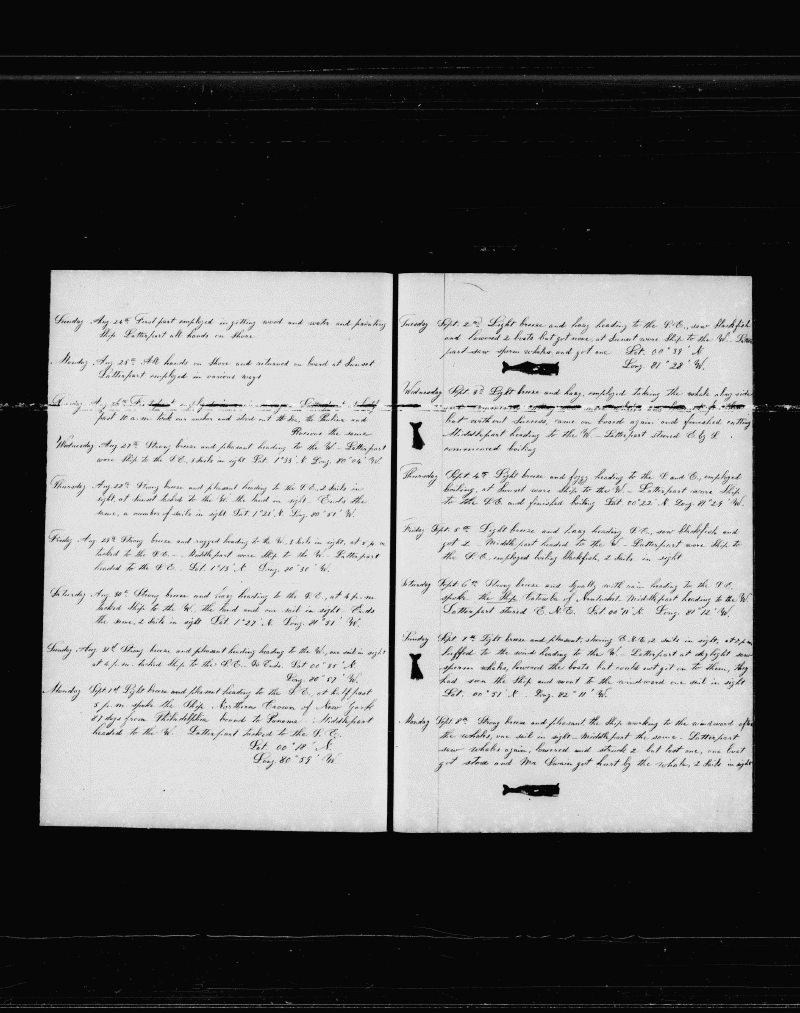 Sunday Aug 24th First part employed in getting wood and water and painting
Ship Latterpart all hands on Shore
Monday Aug 25th All hands on Shore and returned on board at Sunset
Latterpart employed in various ways
Aug 26th
past 10 a.m. took our anchor and stood out
the same
Wednesday Aug 27th Strong breeze and pleasant heading to the W. Latterpart
wore Ship to the S.E, 2 Sails in sight Lat. 1°33' N Long. 80°04' W.
Thursday Aug 28th Strong breeze and pleasant heading to the S.E, 2 Sails in
sight at Sunset tacked to the W. the land in sight. Ends the
same, a number of sails in sight Lat 1°25' N Long. 80°51' W.
Friday Aug 29th Strong breeze and rugged heading to the W, 2 Sails in sight, at 5 p.m
tacked to the S.E. Middlepart wore Ship to the W. Latterpart
headed to the S.E. Lat 1°13' N Long. 80°30' W.
Saturday Aug 30th Strong breeze and hazy heading to the S.E, at 4 p.m
tacked Ship to the W. the land and one sail in sight. Ends
the same, 2 sails in sight Lat 1°27' N. Long. 81°31' W.
Sunday Aug 31st Strong breeze and pleasant heading heading to the W, one sail in sight
at 4 p.m. tacked Ship to the S.E. So Ends. Lat 00°55' N
Long. 80°57' W.
Monday Sept 1st Light breeze and pleasant heading to the S.E, at half past
5 p.m spoke the Ship Northern Crown of New York
81 days from Philadelphia bound to Panama. Middlepart
headed to the W. Latterpart tacked to the S.E.
Lat. 00°18' N
Long. 80°59' W.
Tuesday Sept. 2nd Light breeze and hazy heading to the S.E., saw blackfish
and lowered 2 boats but got none, at Sunset wore Ship to the W. Latter
part saw sperm whales and got one Lat. 00°39' N
Long. 81°28' W.
Wednesday Sept. 3d Light breeze and hazy, employed taking the whale along side
but without success, came on board again and finished cutting
Middlepart heading to the W. Latterpart steered E by S.
commenced boiling
Thursday Sept. 4th Light breeze and foggy heading to the S. and E, employed
boiling, at Sunset wore Ship to the W. Latterpart wore Ship
to the S.E and finished boiling Lat 00°22' N Long. 81°24' W.
Friday Sept. 5th Light breeze and hazy heading S.E, saw blackfish and
got 2. Middlepart headed to the W. Latterpart wore Ship to
the S.E, employed boiling blackfish, 2 Sails in sight
Saturday Sept. 6th Strong breeze and squally with rain heading to the S.E.
spoke the Ship Catawba of Nantucket Middlepart heading to the W.
Latterpart steered E.N.E. Lat. 00°11' N. Long. 81°12' W.
Sunday Sept 7th Light breeze and pleasant, steering E.N.E, 2 sails in sight, at 2 p.m
luffed to the wind heading to the W. Latterpart at daylight saw
sperm whales, lowered the boats but could not get on to them, they
had seen the Ship and went to the windward one sail in sight
Lat. 00°51' N. Long. 82°11' W.
Monday Sept 8th Strong breeze and pleasant the Ship working to the windward after
the whales, one sail in sight. Middlepart the same. Latterpart
saw whales again, lowered and struck 2 but lost one, one boat
got stove and Mr Swain got hurt by the whale, 2 Sails in sight